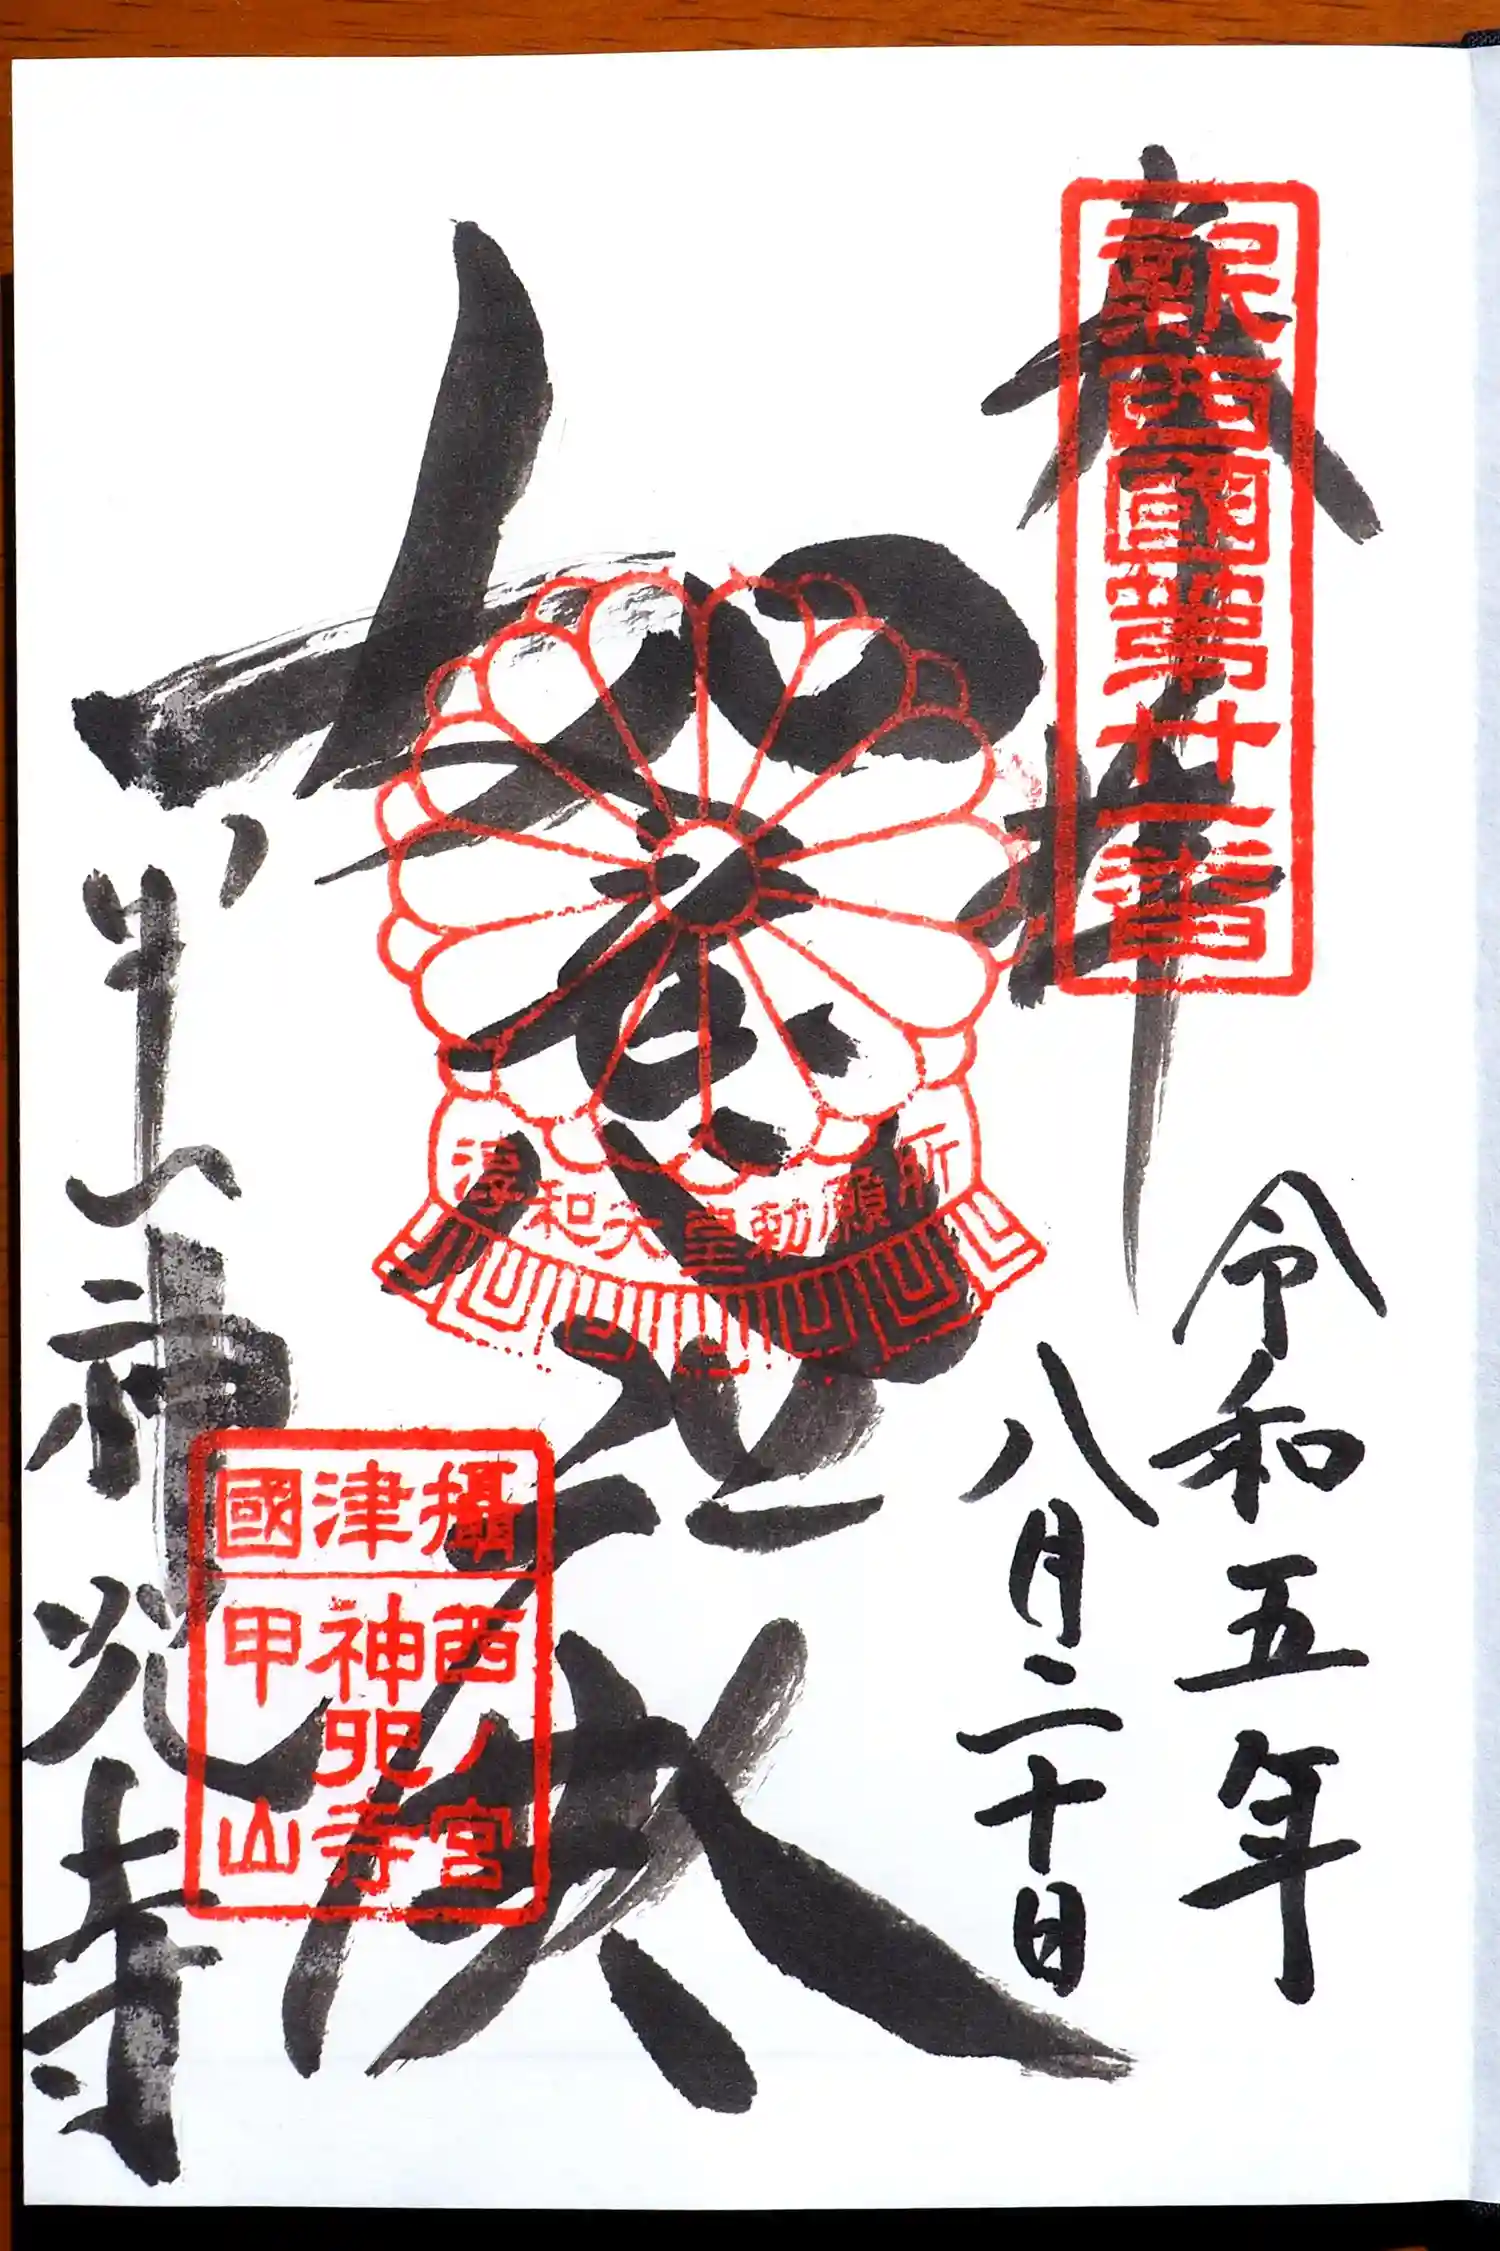 奉拝
新西國第廿一番
令和五年
八月二十日
如意
輪殿
淳和天皇勅願所
甲山神呪寺
攝津國
西ノ宮
神呪寺
甲山